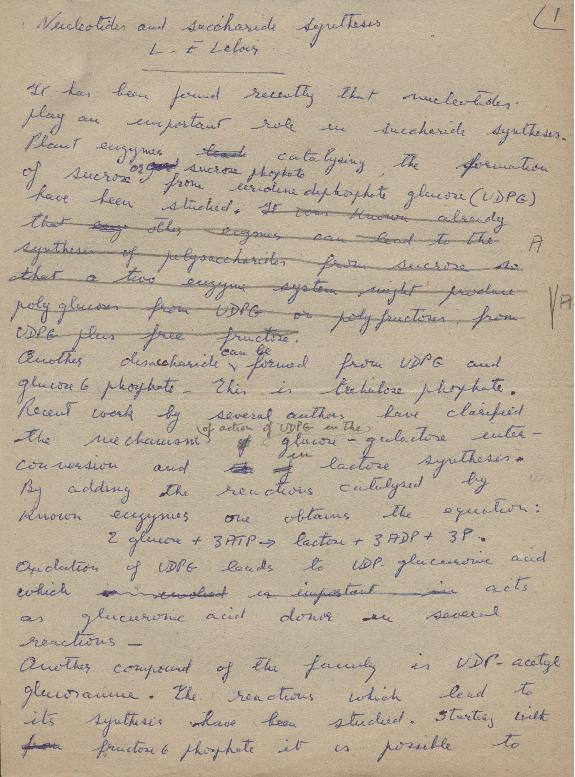 Nucleotides and saccharide synthesis
1
L. F. Leloir
It has been found recently that nucleotides
play an important role in saccharide synthesis.
Plant enzymes lead catalysing the formation
of sucrose or sucrose phophate from uridine diphosphate glucose (UDPG)
have been studied. It was known already
that other enzymes can lead to the A
synthesis of polysaccharides from sucrose so
that a two enzyme system might produce A
poly glucoses from UDPG or poly fructoses from
UDPG plus free fructose.
Another disaccharide can be formed from UDPG and
glucose 6 phophate - This is trehalose phophate.
Recent work by several authors have clarified
the mechanism of action of UDPG in the glucose - galactose inter-
conversion and in lactose synthesis.
By adding the reactions catalysed by
known enzymes one obtains the equation:
2 glucose + 3 ATP → lactose + 3 ADP + 3 P.
Oxidation of UDPG leads to UDP-glucuronic acid
which is involved is important in acts
as glucuronic acid donor in several
reactions -
Another compound of the family is UDP-acetyl
glucosamine. The reactions which lead to
its synthesis have been studied. Starting with
from fructose 6 phophate it is possible to